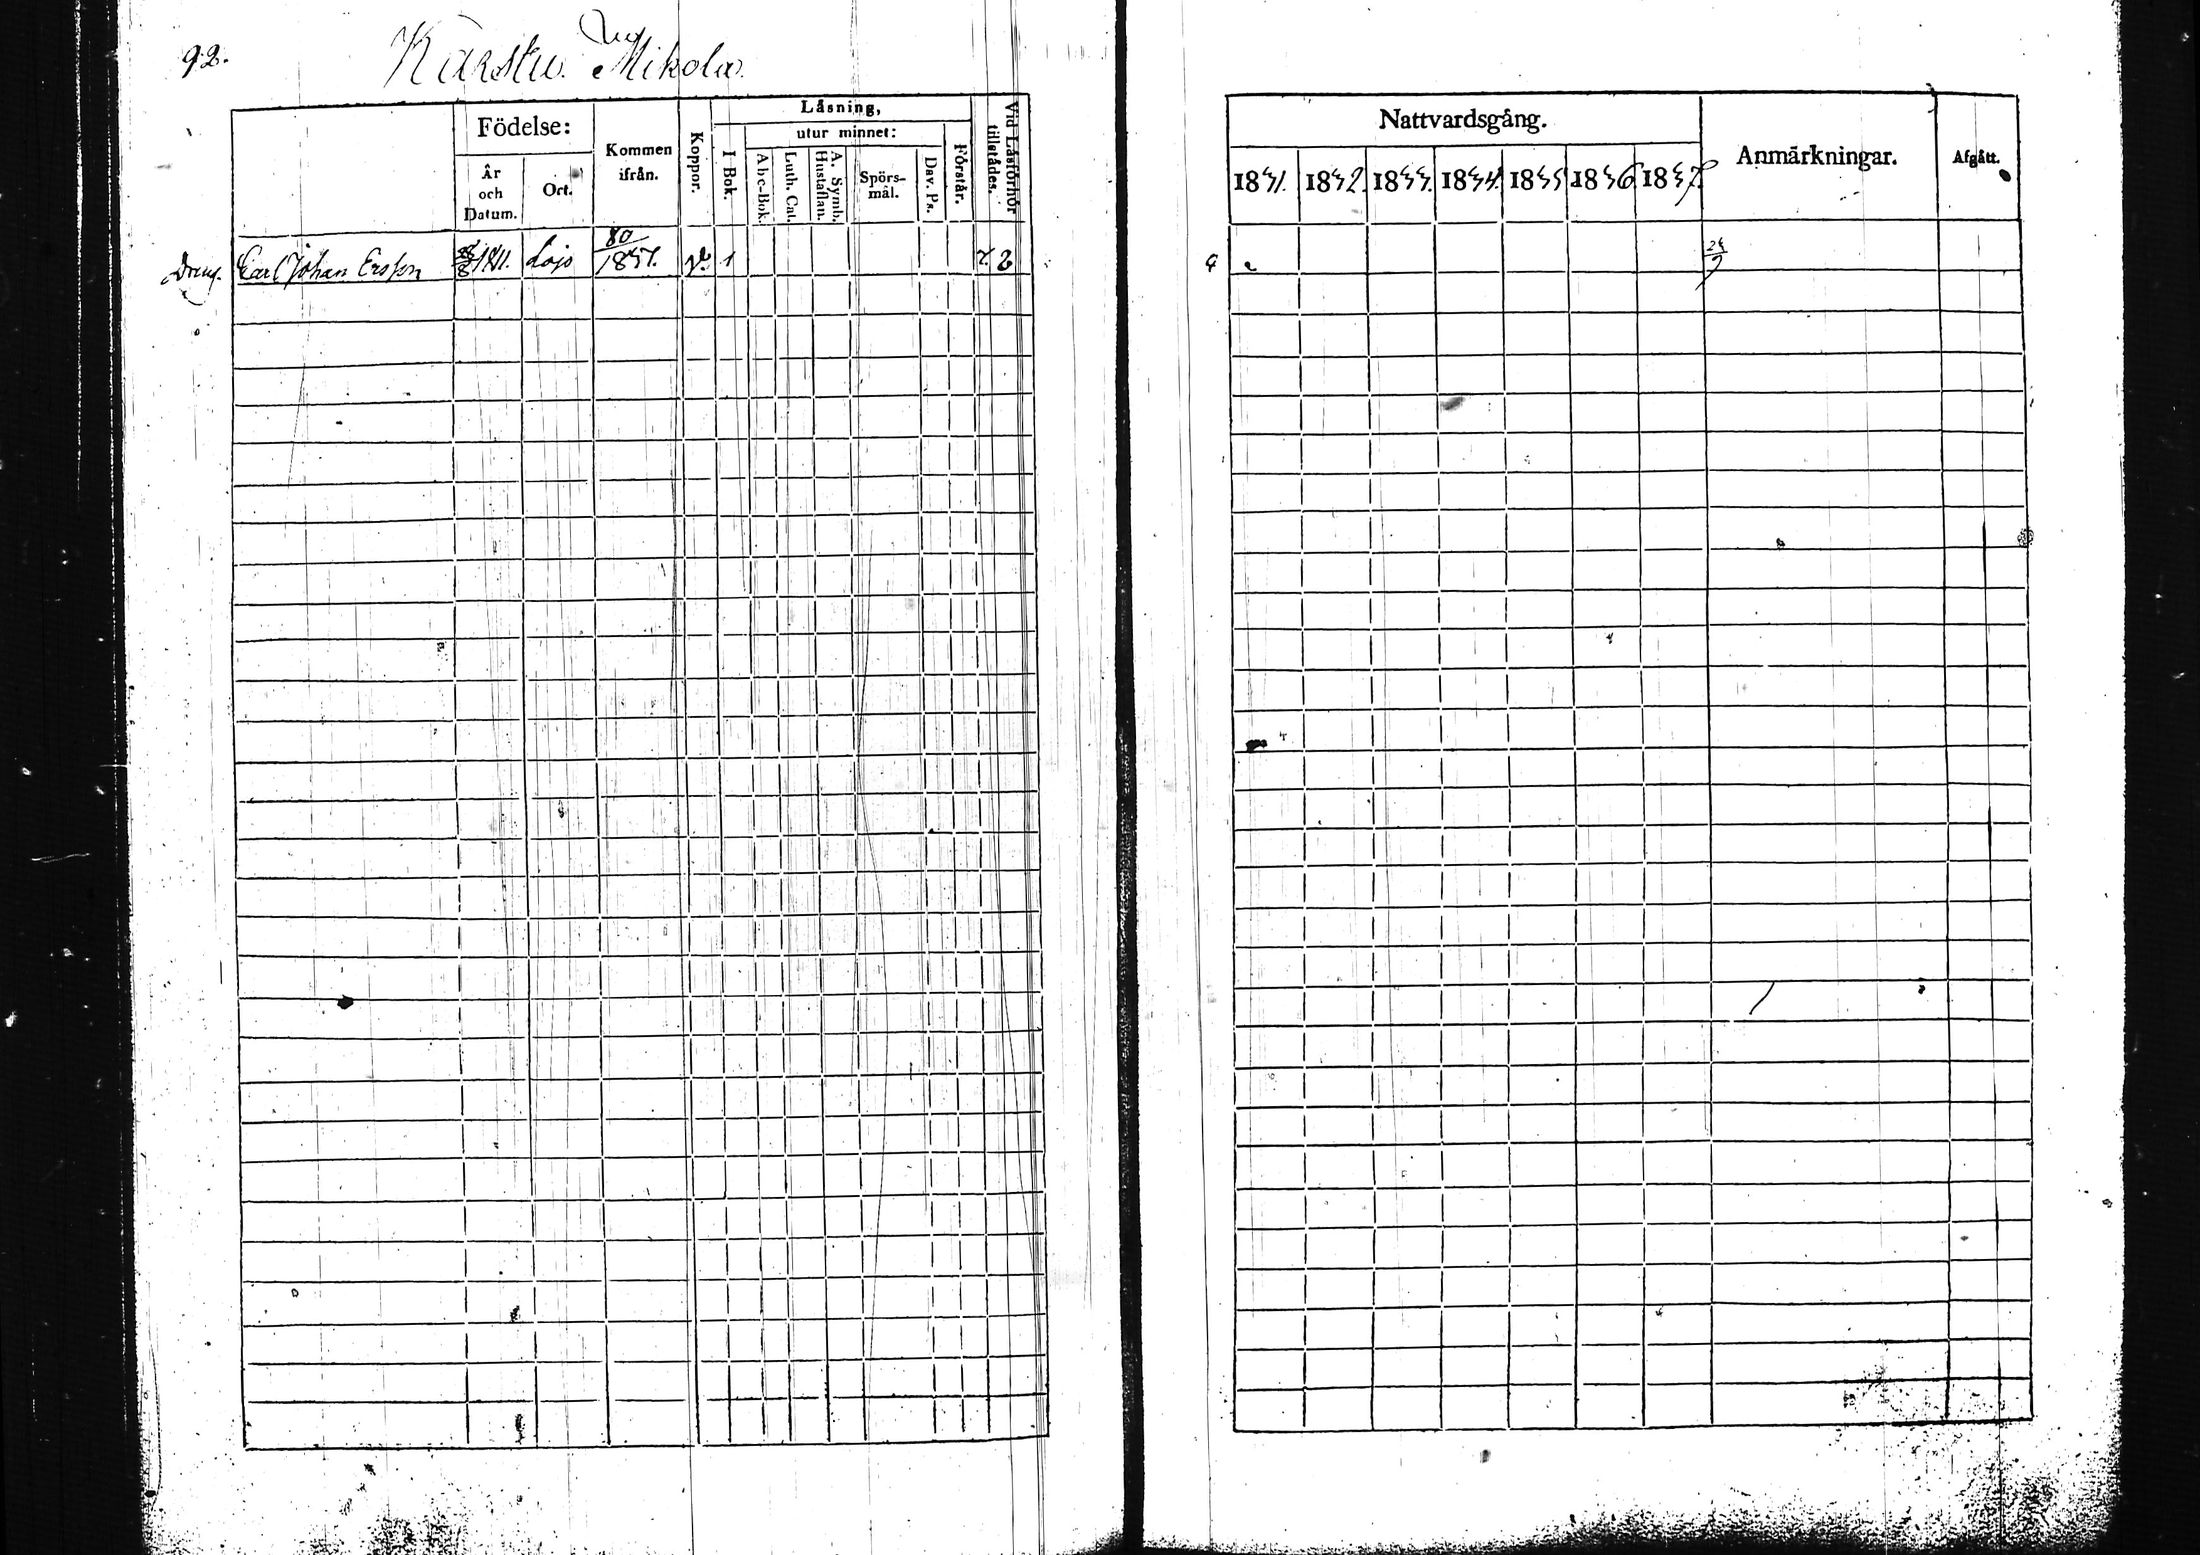 92.
Karstu. Mikola.
Födelse:
År och Datum.
Ort.
Kommen ifrån.
Koppor.
Läsning,
I Bok.
utur minnet:
Abc-Bok.
Luth. Cat.
A. Symb. Hustaflan.
Spörs-mål.
Dav. Ps.
Förstår.
Vid Läsförhör tillstädes.
Nattvardsgång.
1851. 1852. 1853. 1854. 1855 1856 1857.
Anmärkningar.
Afgått.
Dreng. Carl Johan Ersson 1811. Lojo 80 1851. v. 1 2
24/9